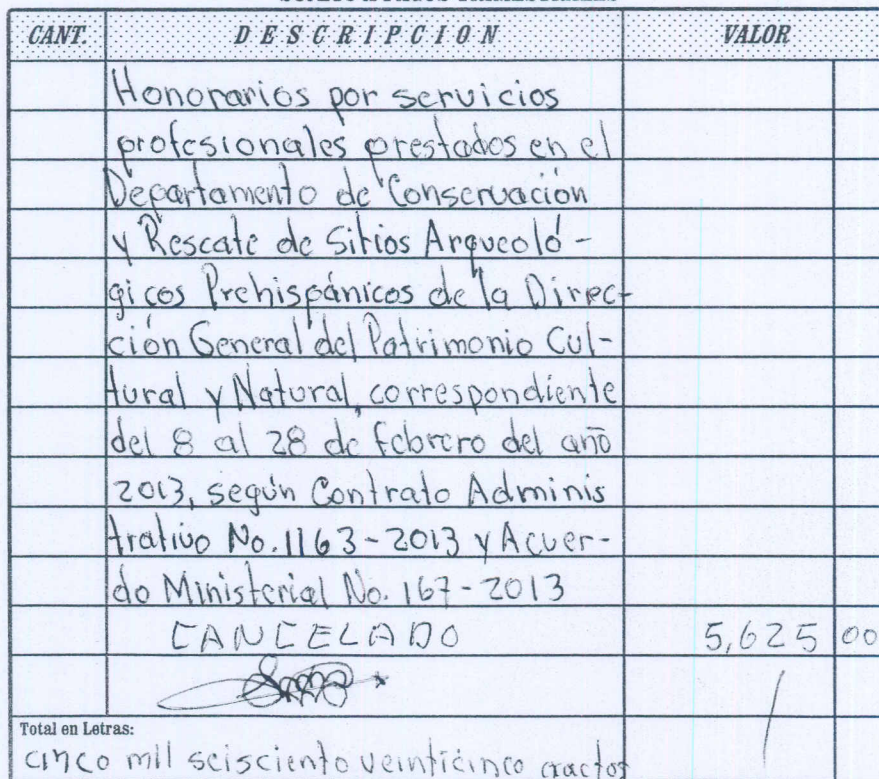 CANT. DESCRIPCION VALOR
Honorarios por servicios
profesionales prestados en el
Departamento de Conservación
y Rescate de Sitios Arqueoló-
gicos Prehispánicos de la Direc-
ción General del Patrimonio Cul-
tural y Natural, correspondiente
del 8 al 28 de febrero del año
2013, según Contrato Adminis
trativo No. 1163-2013 y Acuer-
do Ministerial No. 167-2013
CANCELADO 5,625 00
Total en Letras:
cinco mil seisciento veinticinco exactos